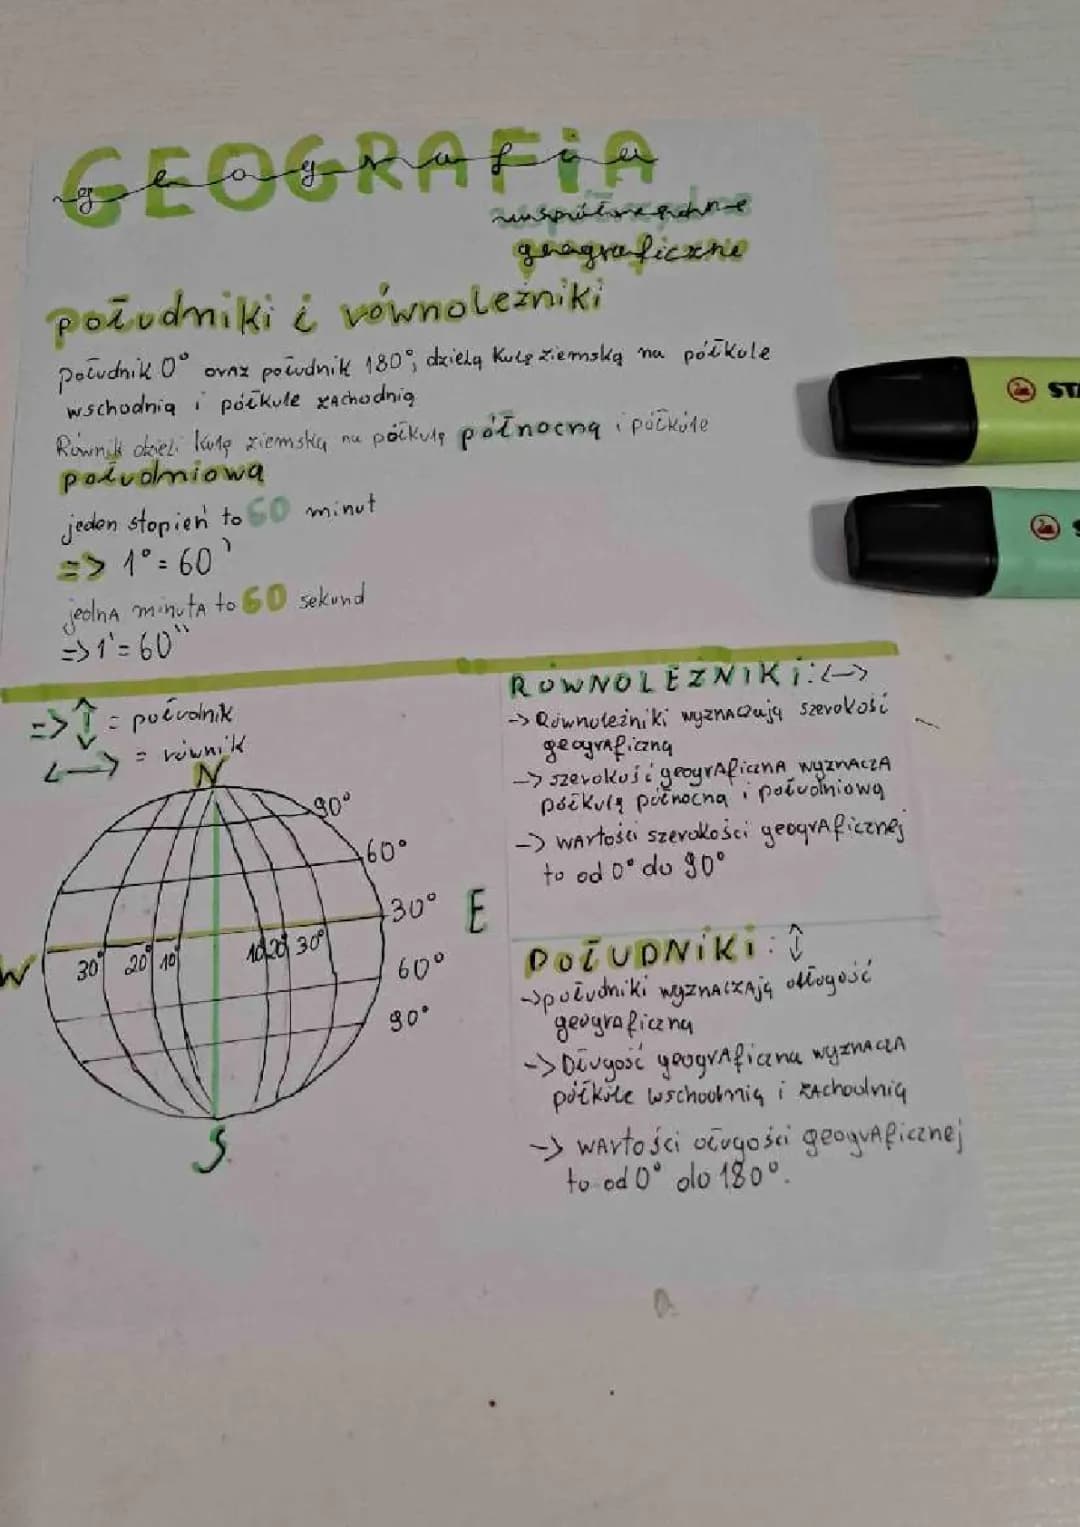 GEOGRAFiA
geografia
współrzędne
geograficzne
południki i równoleżniki
południk 0° oraz południk 180°, dzielą Kulę ziemską na półkule
wschodnią i półkule zachodnią
Równik dzieli kulę ziemską na półkulę północną i półkule
południową
jeden stopień to 60 minut
=> 1° = 60'
jedna minuta to 60 sekund
=> 1' = 60"
=> ↕ = południk
<—> = równik
N
90°
60°
30°
E
W
30° 20° 10° 10° 20° 30°
60°
90°
S
RÓWNOLEŻNIKi: <->
-> Równoleżniki wyznaczają szerokość
geograficzną
-> szerokość geograficzna wyznacza
półkulę północną i południową
-> wartości szerokości geograficznej
to od 0° do 90°
POŁUDNiKi: ↕
-> południki wyznaczają długość
geograficzną
-> Długość geograficzna wyznacza
półkule wschodnią i zachodnią
-> wartości długości geograficznej
to od 0° do 180°.
STA
S